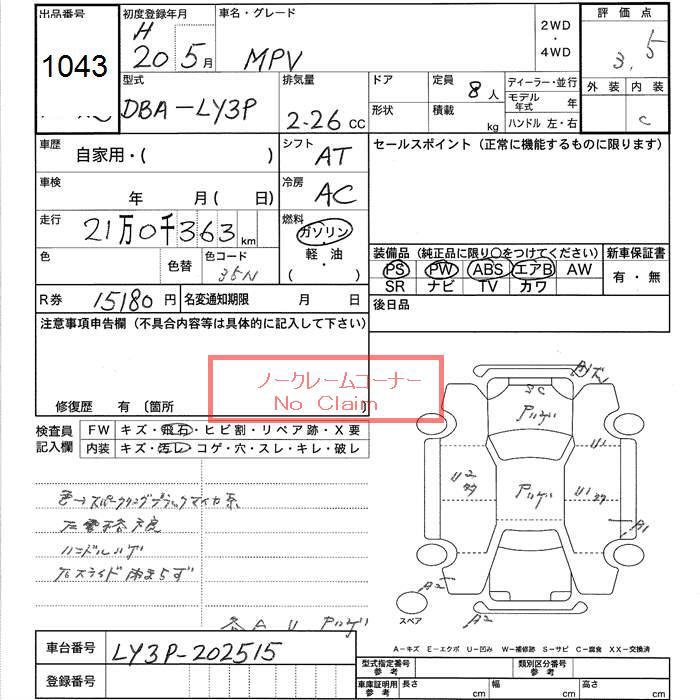 出品番号
1043
初度登録年月
H
20 5 月
車名・グレード
MPV
2WD
・
4WD
評価点
3.5
外装 内装
C
型式
DBA-LY3P
排気量
2.26 CC
ドア
形状
定員
8 人
積載
kg
ディーラー・並行
モデル年式 年
ハンドル 左・右
車歴
自家用・( )
シフト
AT
セールスポイント(正常に機能するものに限ります)
車検
年 月( 日)
冷房
AC
走行
21万0千363 km
燃料
ガソリン
・
軽・油
( )
色
色替
色コード
35N
装備品(純正品に限り○をつけてください)
新車保証書
PS PW ABS エアB AW
有・無
SR ナビ TV カワ
R券
15180 円
名変通知期限 月 日
後日品
注意事項申告欄(不具合内容等は具体的に記入して下さい)
ノークレームコーナー
No Claim
修復歴 有 〔箇所
検査員
記入欄
FW キズ・飛石・ヒビ割・リペア跡・X要
内装 キズ・汚レ・コゲ・穴・スレ・キレ・破レ
色→スパークリングブラックマイカ系
ハンドルハゲ
各AU アハゲ
3C
アハゲ
アハゲ
U1
U2
U1
A1
A2
A2
スペア
車台番号
LY3P-202515
登録番号
A-キズ E-エクボ U-凹み W-補修跡 S-サビ C-腐食 XX-交換済
型式指定番号
参考
類別区分番号
参考
車庫証明用
参考
長さ cm
幅 cm
高さ cm